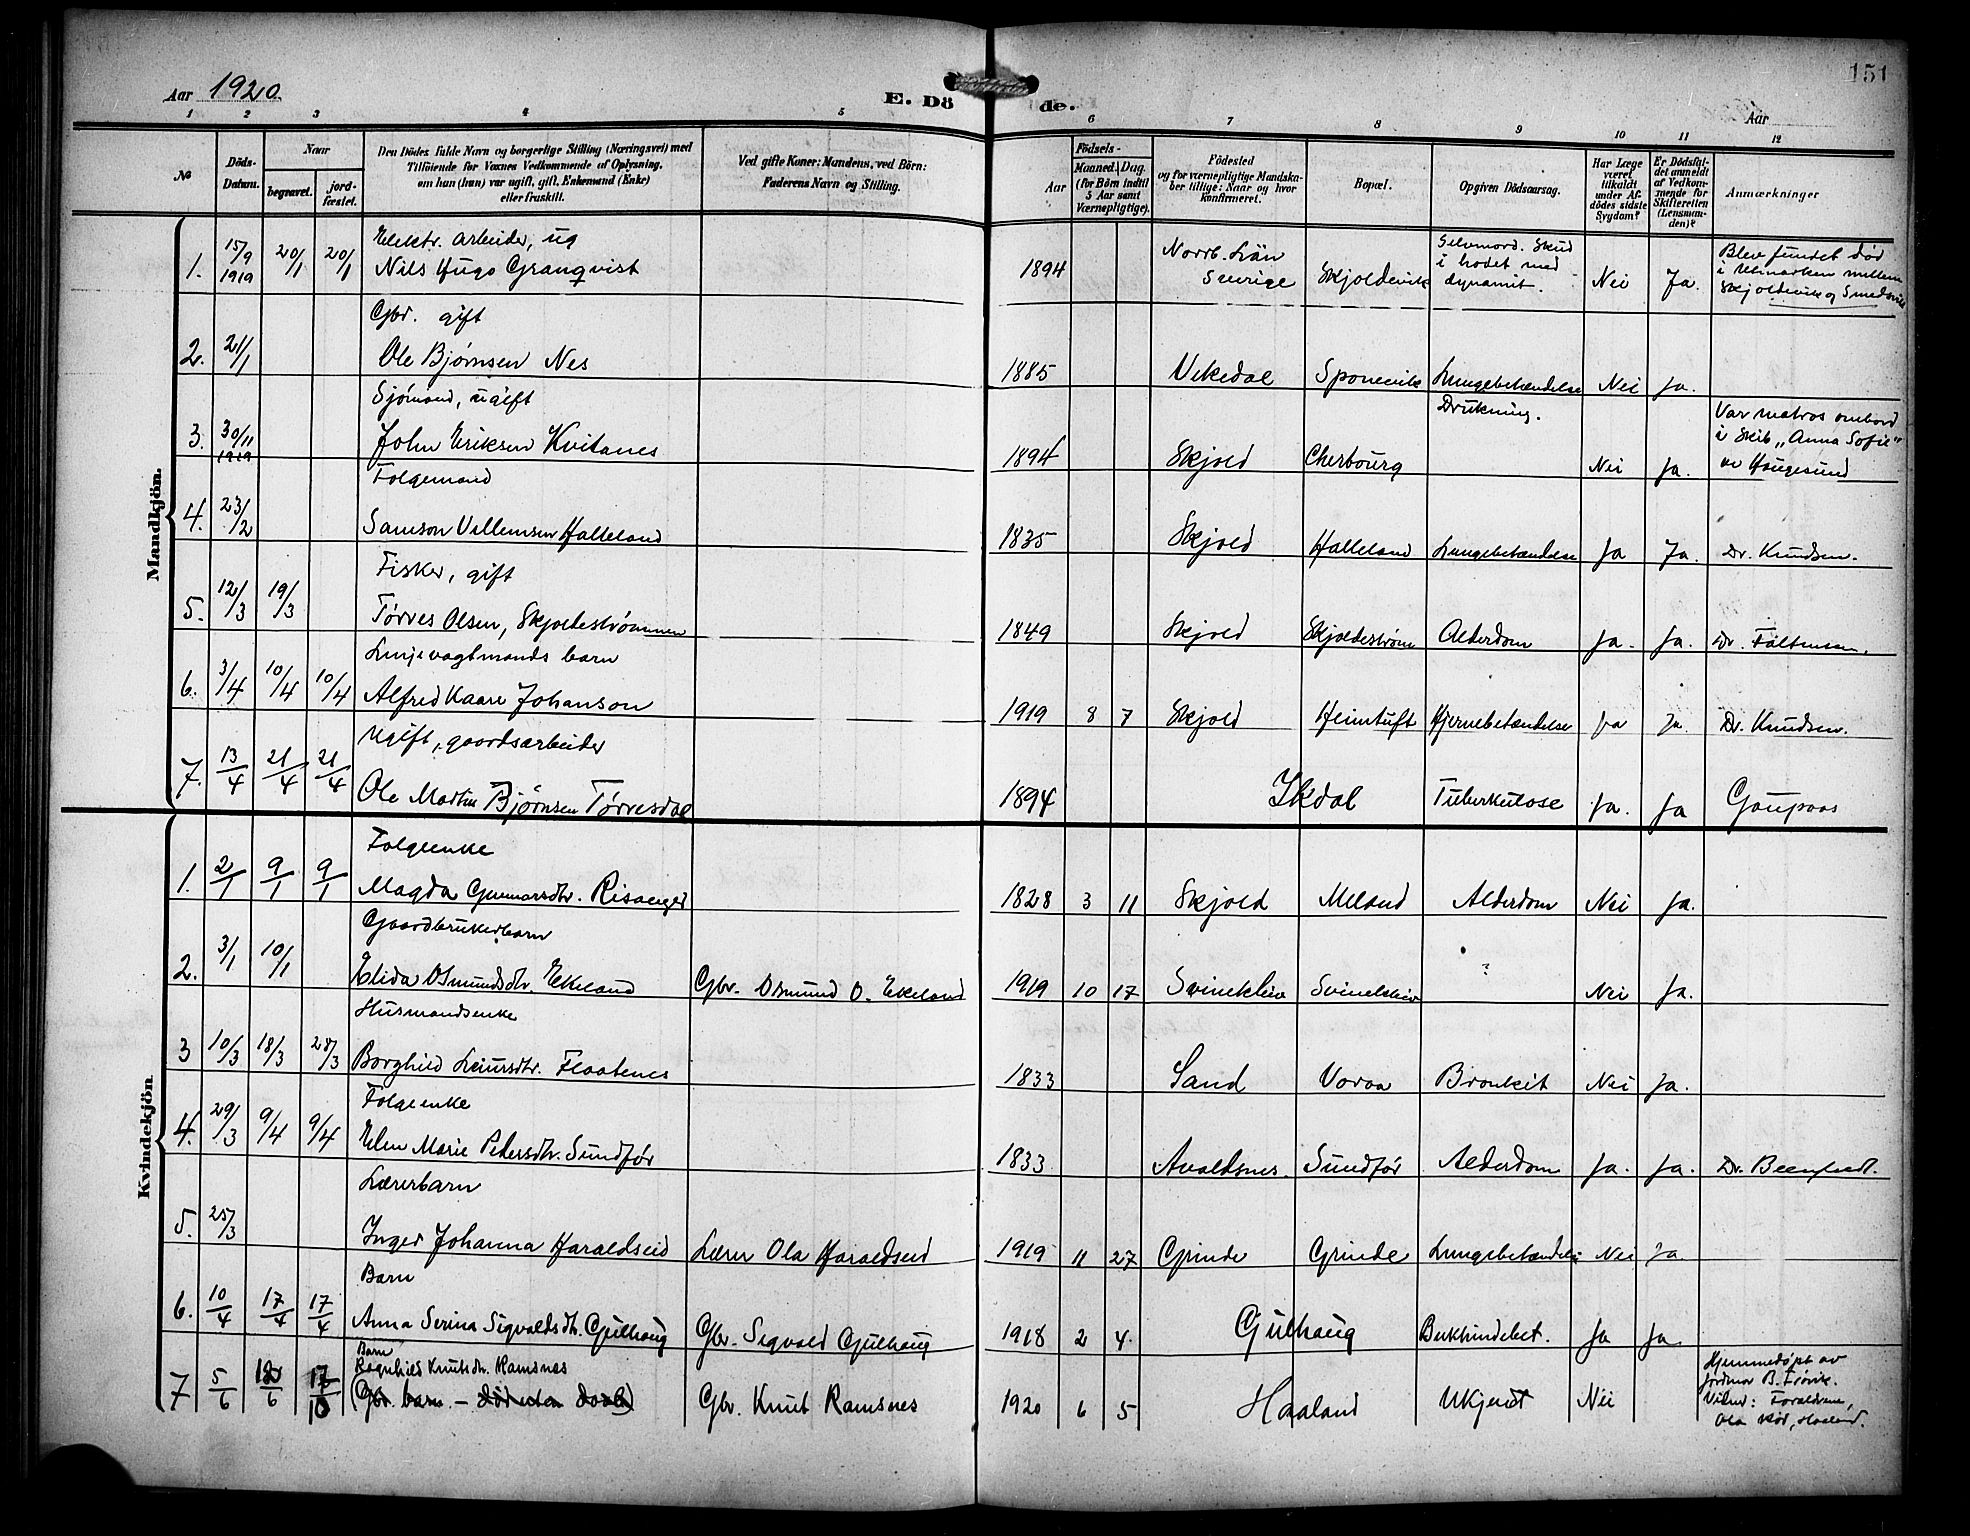 151
Aar 1920
E. Dö de.
Aar
1 2 3 4 5 6 7 8 9 10 11 12
No
Döds-Datum.
Naar
begravet.
jord-fæstet.
Den Dödes fulde Navn og borgerlige Stilling (Næringsvei) med
Tilföiende for Voxnes Vedkommende af Oplysning,
om han (hun) var ugift, gift, Enkemand (Enke)
eller fraskilt.
Ved gifte Koner: Mandens, ved Börn:
Faderens Navn og Stilling.
Födsels-
Aar
Maaned. Dag.
(for Börn indtil
5 Aar samt
Værnepligtige).
Födested
og for værnepligtige Mandska-
ber tillige: Naar og hvor
konfirmeret.
Bopæl.
Opgiven Dödsaarsag.
Har Læge
været
tilkaldt
under Af-
dödes sidste
Sygdom?
Er Dödsfal-
det anmeldt
af Vedkom-
mende for
Skifteretten
(Lensman-
den)?
Anmærkninger
Mandkjön.
1. 15/9 1919 20/1 20/1 Elektr. arbeider, ug
Nils Hugo Granqvist 1894 Norrb. Län Sverige Skjoldevik Selvmord. Skud i hodet med dynamit. Nei Ja. Blev fundet død i Utmarken mellem Skjoldevik og Smedsvik
2. 21/1 Gbr. gift
Ole Bjørnsen Nes 1885 Vikedal Sponevik Lungebetændelse Nei Ja.
3. 30/11 1919 Sjømand, ugift
John Eriksen Kvitanes 1894 Skjold Cherbourg Drukning. Nei Ja. Var matros ombord i Skib "Anna Sofie" av Haugesund
4. 23/2 Folgemand
Samson Villemsen Halleland 1835 Skjold Halleland Lungebetændelse Ja Ja. Dr. Knudsen.
5. 12/3 19/3 Fisker, gift
Tørres Olsen, Skjoldestrømmen 1849 Skjold Skjoldestrøm Alderdom Ja. Ja. Dr.
6. 3/4 10/4 10/4 Linjevagtmands barn
Alfred Kaare Johanson 1919 8 7 Skjold Heimtuft Hjernebetændelse Ja Ja. Dr. Knudsen.
7. 13/4 21/4 21/4 Ugift, gaardsarbeider
Ole Martin Bjørnsen Tørresdal 1894 Ikdal Tuberkulose Ja. Ja Gaupaas
Kvindekjön.
1. 2/1 9/1 9/1 Folgeenke
Magda Gunnarsdtr. Risanger 1828 3 11 Skjold Meland Alderdom Nei Ja.
2. 3/1 10/1 Gaardbrukerbarn
Elida Osmundsdtr. Ekeland Gbr. Osmund O. Ekeland 1919 10 17 Svineklev Svineklev ? Nei Ja.
3 10/3 18/3 28/3 Husmandsenke
Borghild Leiursdtr. Flaatenes 1833 Sand Voraa Bronkit Nei Ja.
4. 29/3 9/4 9/4 Folgeenke
Elen Marie Pedersdtr. Sundfør 1833 Avaldsnes. Sundfør Alderdom Ja. Ja. Dr.
5. 25/3 Lærerbarn
Inger Johanna Haraldseid Lærer Ola Haraldseid 1919 11 27 Grinde Grinde Lungebetændelse Nei Ja
6. 10/4 17/4 17/4 Barn
Anna Serina Sigvaldsdtr. Gjulhaug Gbr. Sigvald Gjulhaug 1918 2 4. Gjulhaug Bukhindebet. Ja Ja.
7 5/6 Barn
Ragnhild Knutsdtr. Ramsnes
(Gbr. barn - død uten daab) Gbr. Knut Ramsnes 1920 6 5 Haaland Ukjendt Nei Hjemmedøpt av jordmor B. Vidner: Foreldrene, Ola